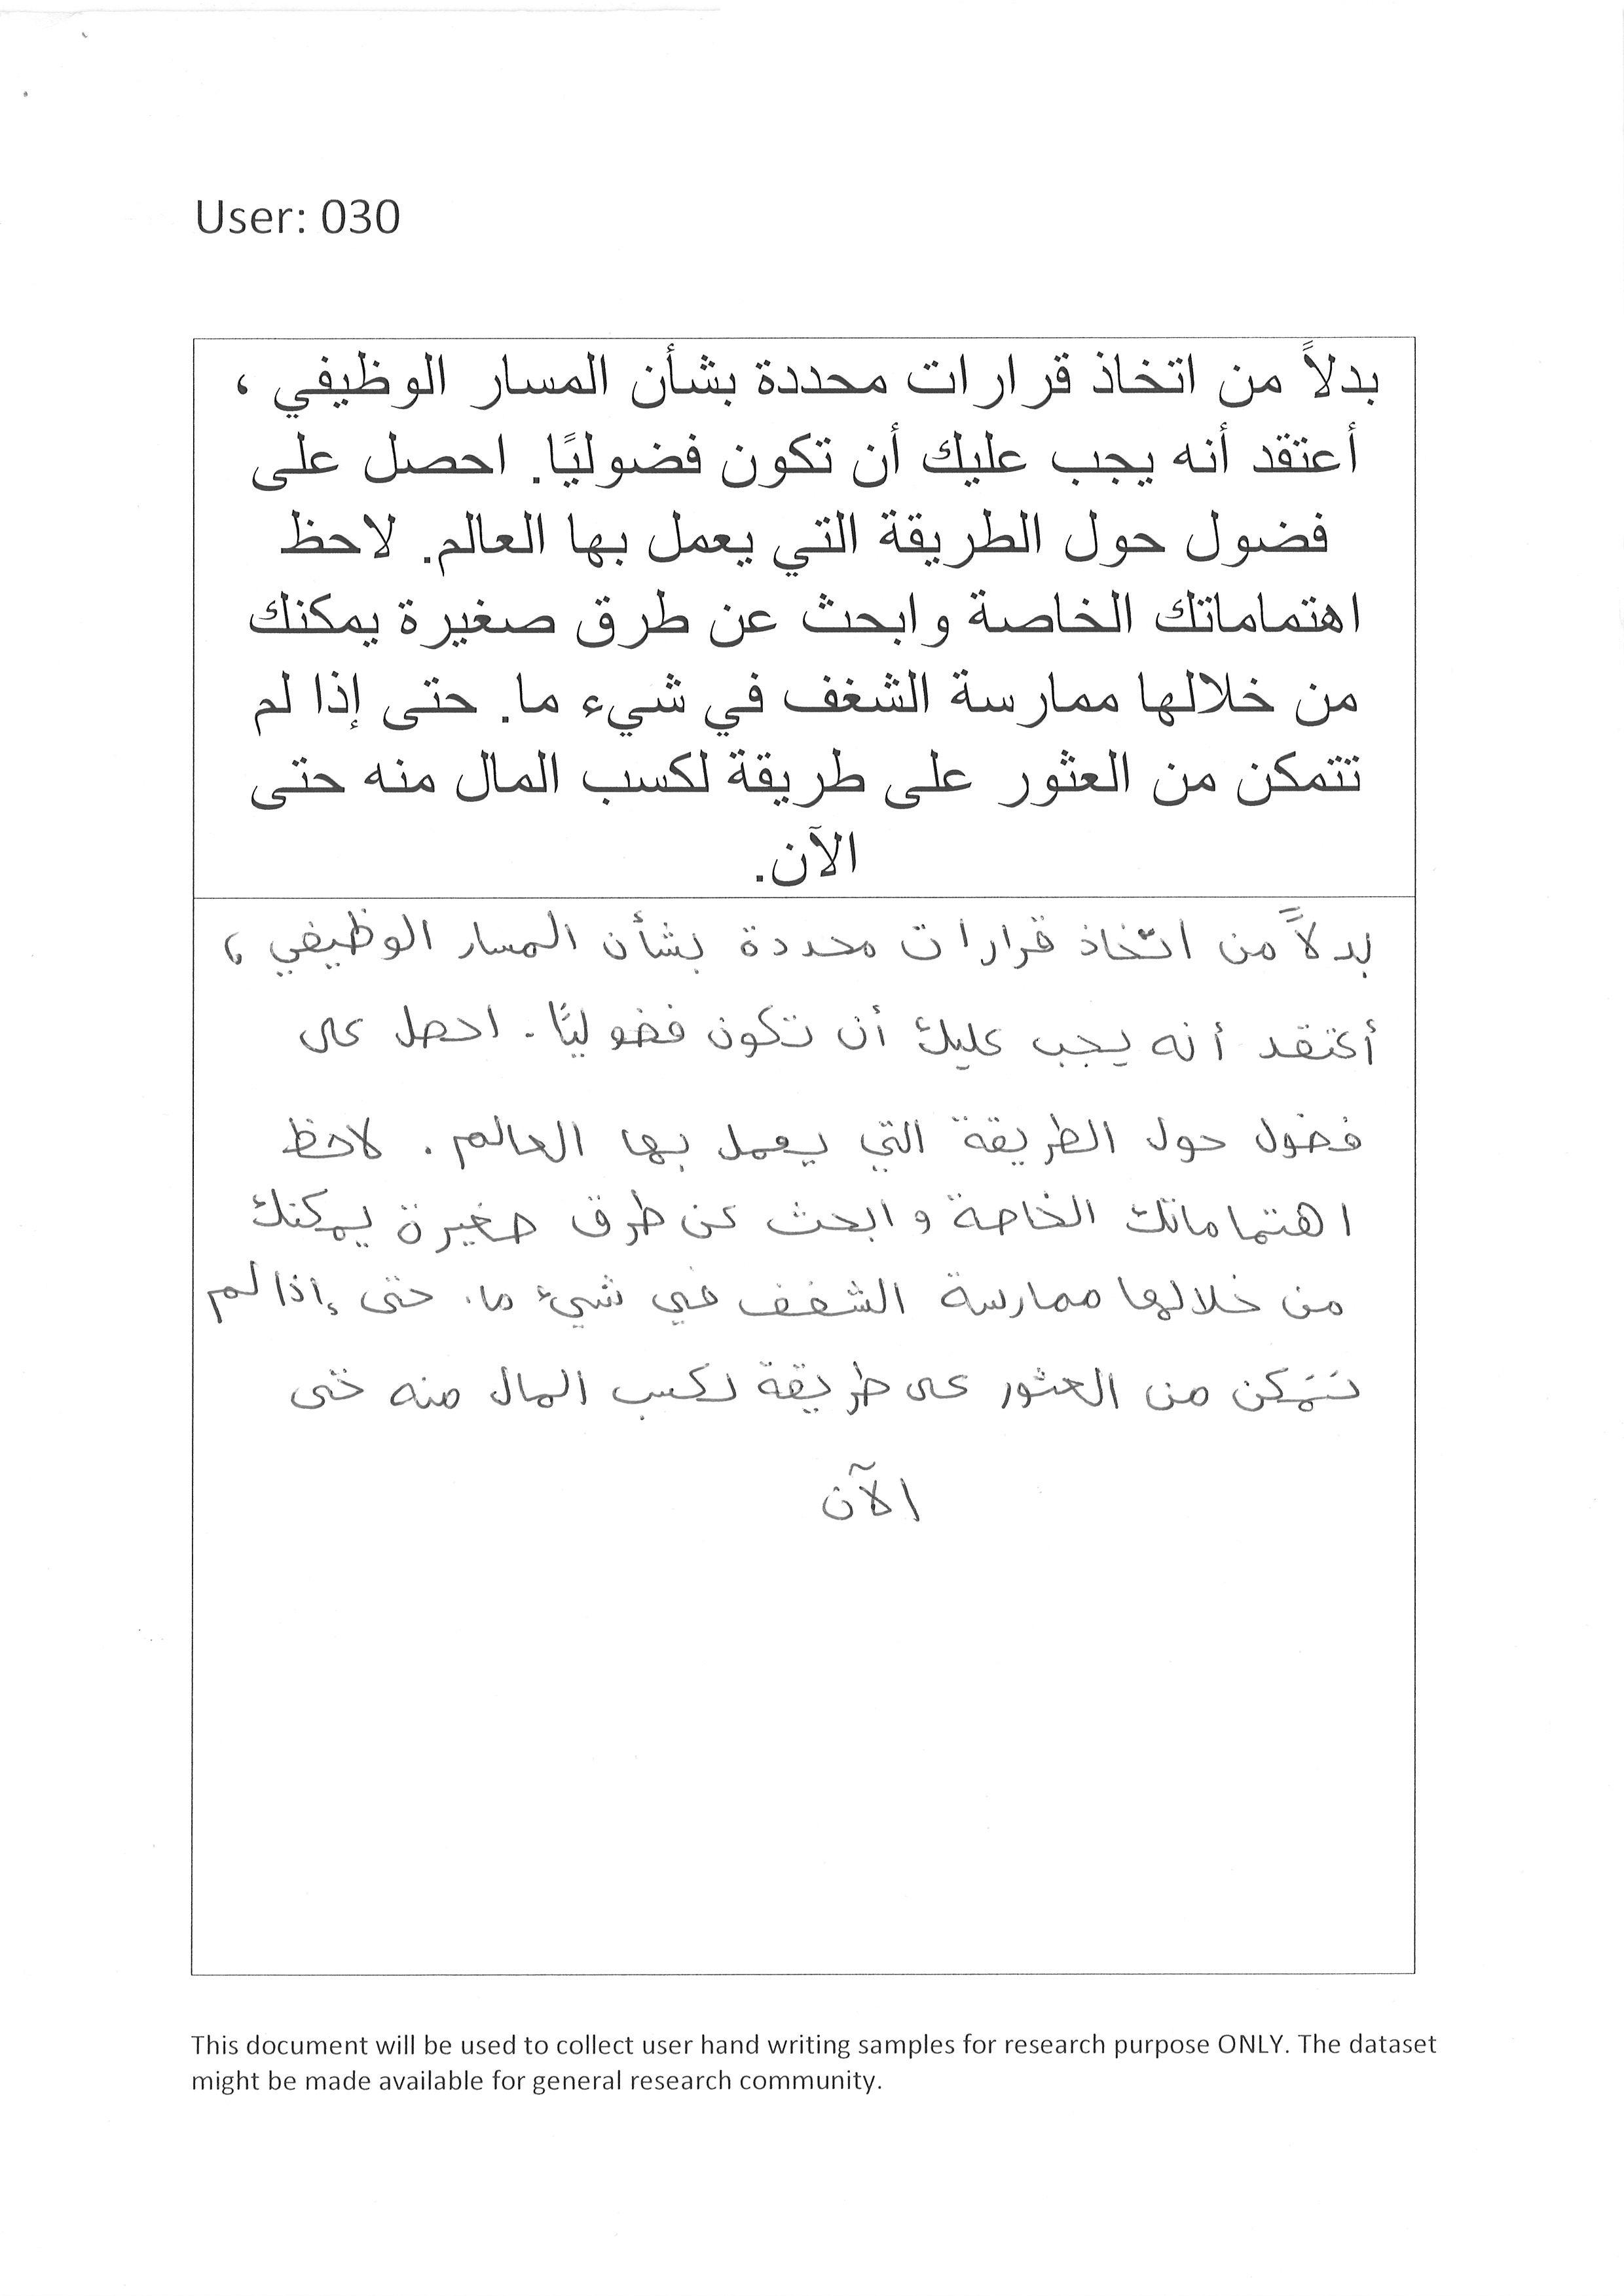 User: 030
بدلاً من اتخاذ قرارات محددة بشأن المسار الوظيفي ،
أعتقد أنه يجب عليك أن تكون فضوليًا. احصل على
فضول حول الطريقة التي يعمل بها العالم. لاحظ
اهتماماتك الخاصة وابحث عن طرق صغيرة يمكنك
من خلالها ممارسة الشغف في شيء ما. حتى إذا لم
تتمكن من العثور على طريقة لكسب المال منه حتى
الآن.
بدلاً من اتخاذ قرارات محددة بشأن المسار الوظيفي ،
أعتقد أنه يجب عليك أن تكون فضوليًا. احصل على
فضول حول الطريقة التي يعمل بها العالم. لاحظ
اهتماماتك الخاصة وابحث عن طرق صغيرة يمكنك
من خلالها ممارسة الشغف في شيء ما. حتى إذا لم
تتمكن من العثور على طريقة لكسب المال منه حتى
الآن
This document will be used to collect user hand writing samples for research purpose ONLY. The dataset
might be made available for general research community.